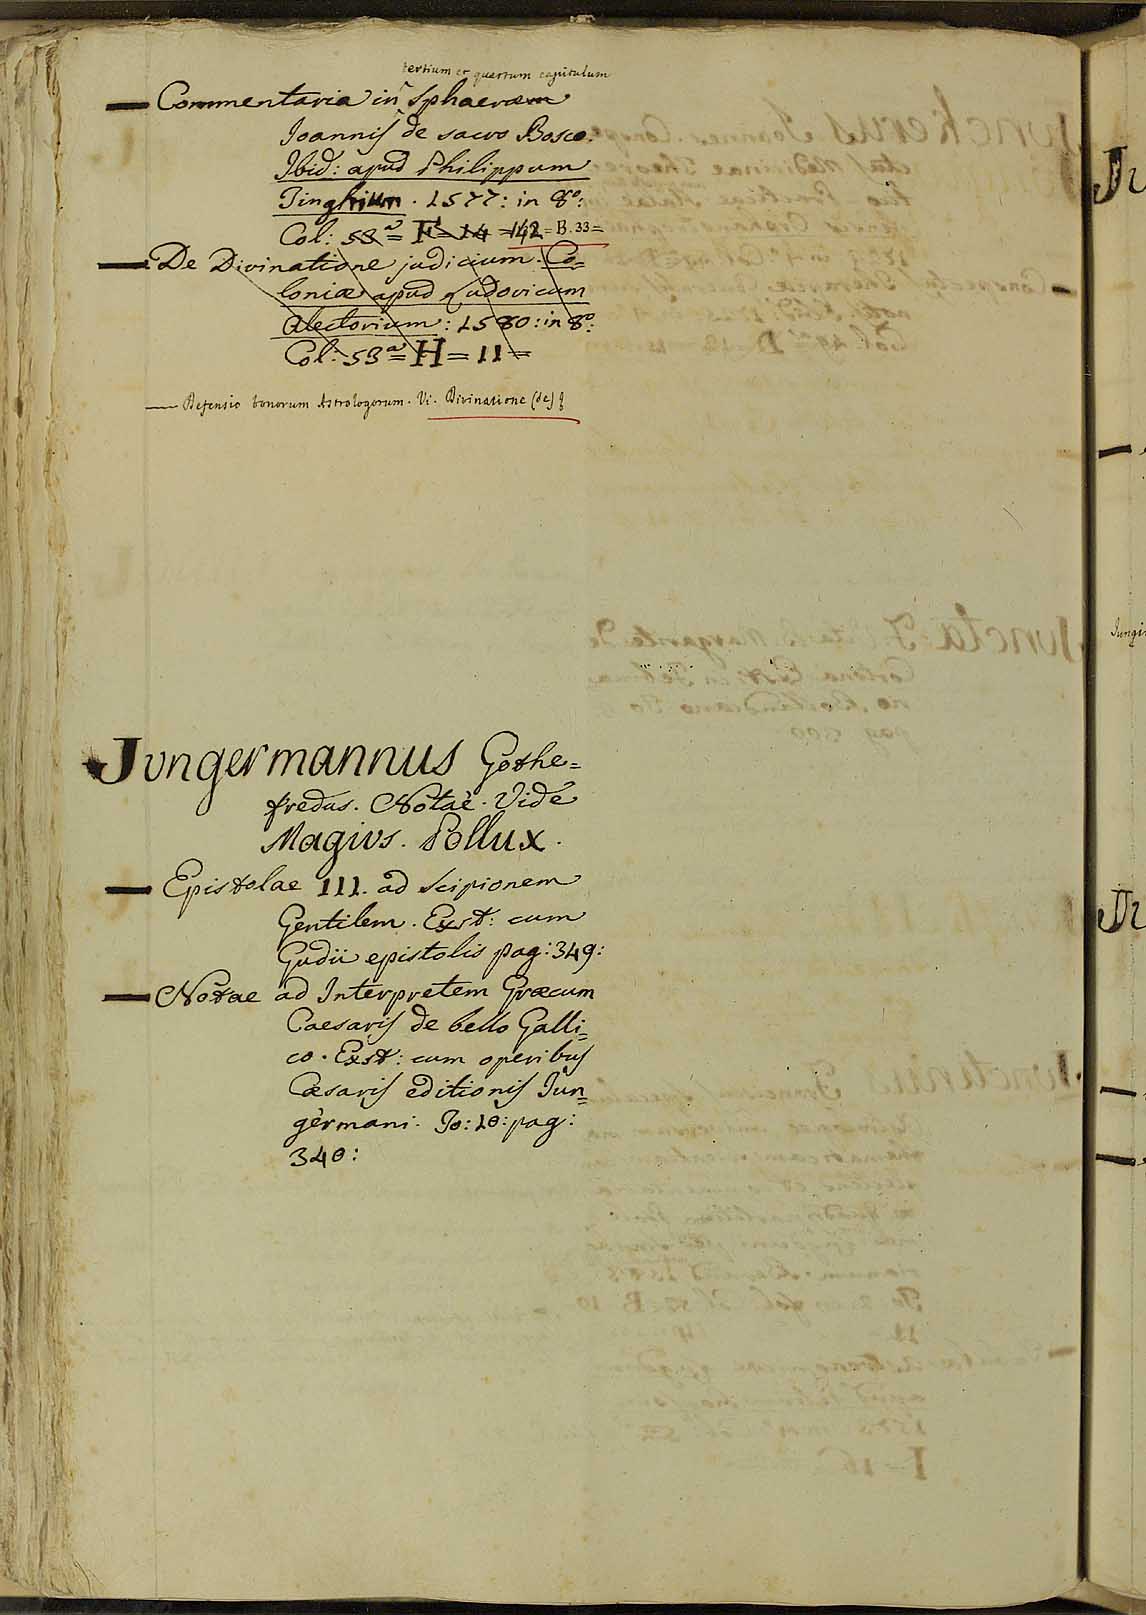 tertium et quartum capitulum
— Commentaria in ^ Sphaeram
Joannis de sacro Bosco.
Ibid: apud Philippum
Tinghium. 1577: in 8º:
Col: 53ª = F = 14 = 142 = B. 33 =
— De Divinatione judicium. Co=
loniæ apud Ludovicum
Alectorium: 1580: in 8º:
Col: 53ª = H = 11 =
— Defensio bonorum Astrologorum. Vi. Divinatione (de) &
Jungermannus Gothe=
fredus. Notae. Vide
Magius. Pollux.
— Epistolae III. ad Scipionem
Gentilem. Exst: cum
Gudii epistolis pag: 349:
— Notae ad Interpretem Græcum
Caesaris de bello Galli=
co. Exst: cum operibus
Cæsaris editionis Jun=
germani. To: 10: pag:
340: